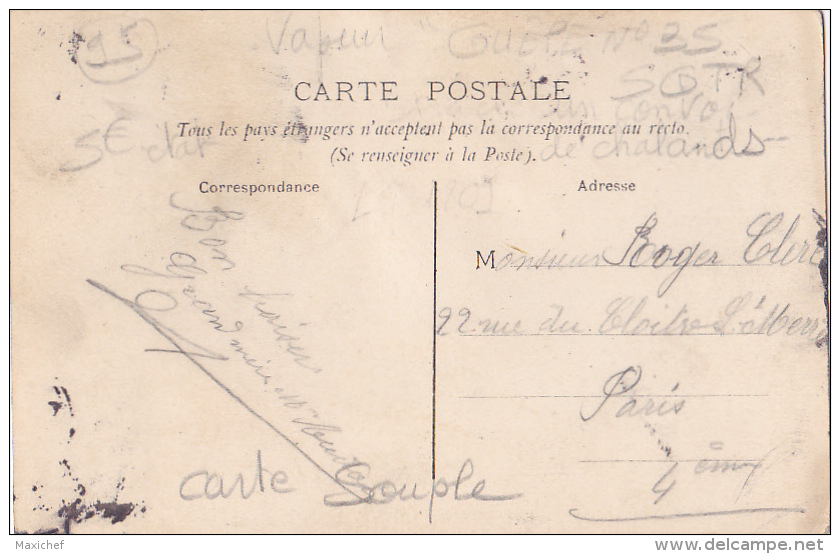 95
Vapeur "Guêpe N° 25
SGTR
CARTE POSTALE
un convoi
Tous les pays étrangers n'acceptent pas la correspondance au recto.
de chalands
(Se renseigner à la Poste).
SE état
Correspondance
Adresse
Bon baiser
Grand mère
Monsieur Roger Clerc
22 rue du Cloitre St Merri
Paris
4ème
carte Souple
Maxichef
www.delcampe.net